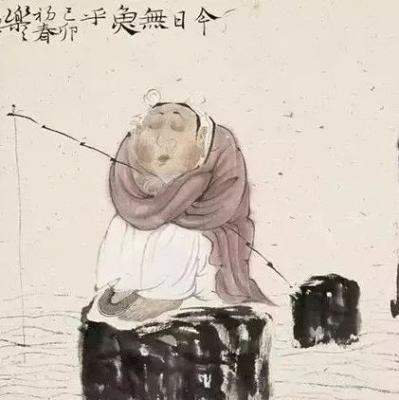 今日無魚乎
己卯
初春
樂